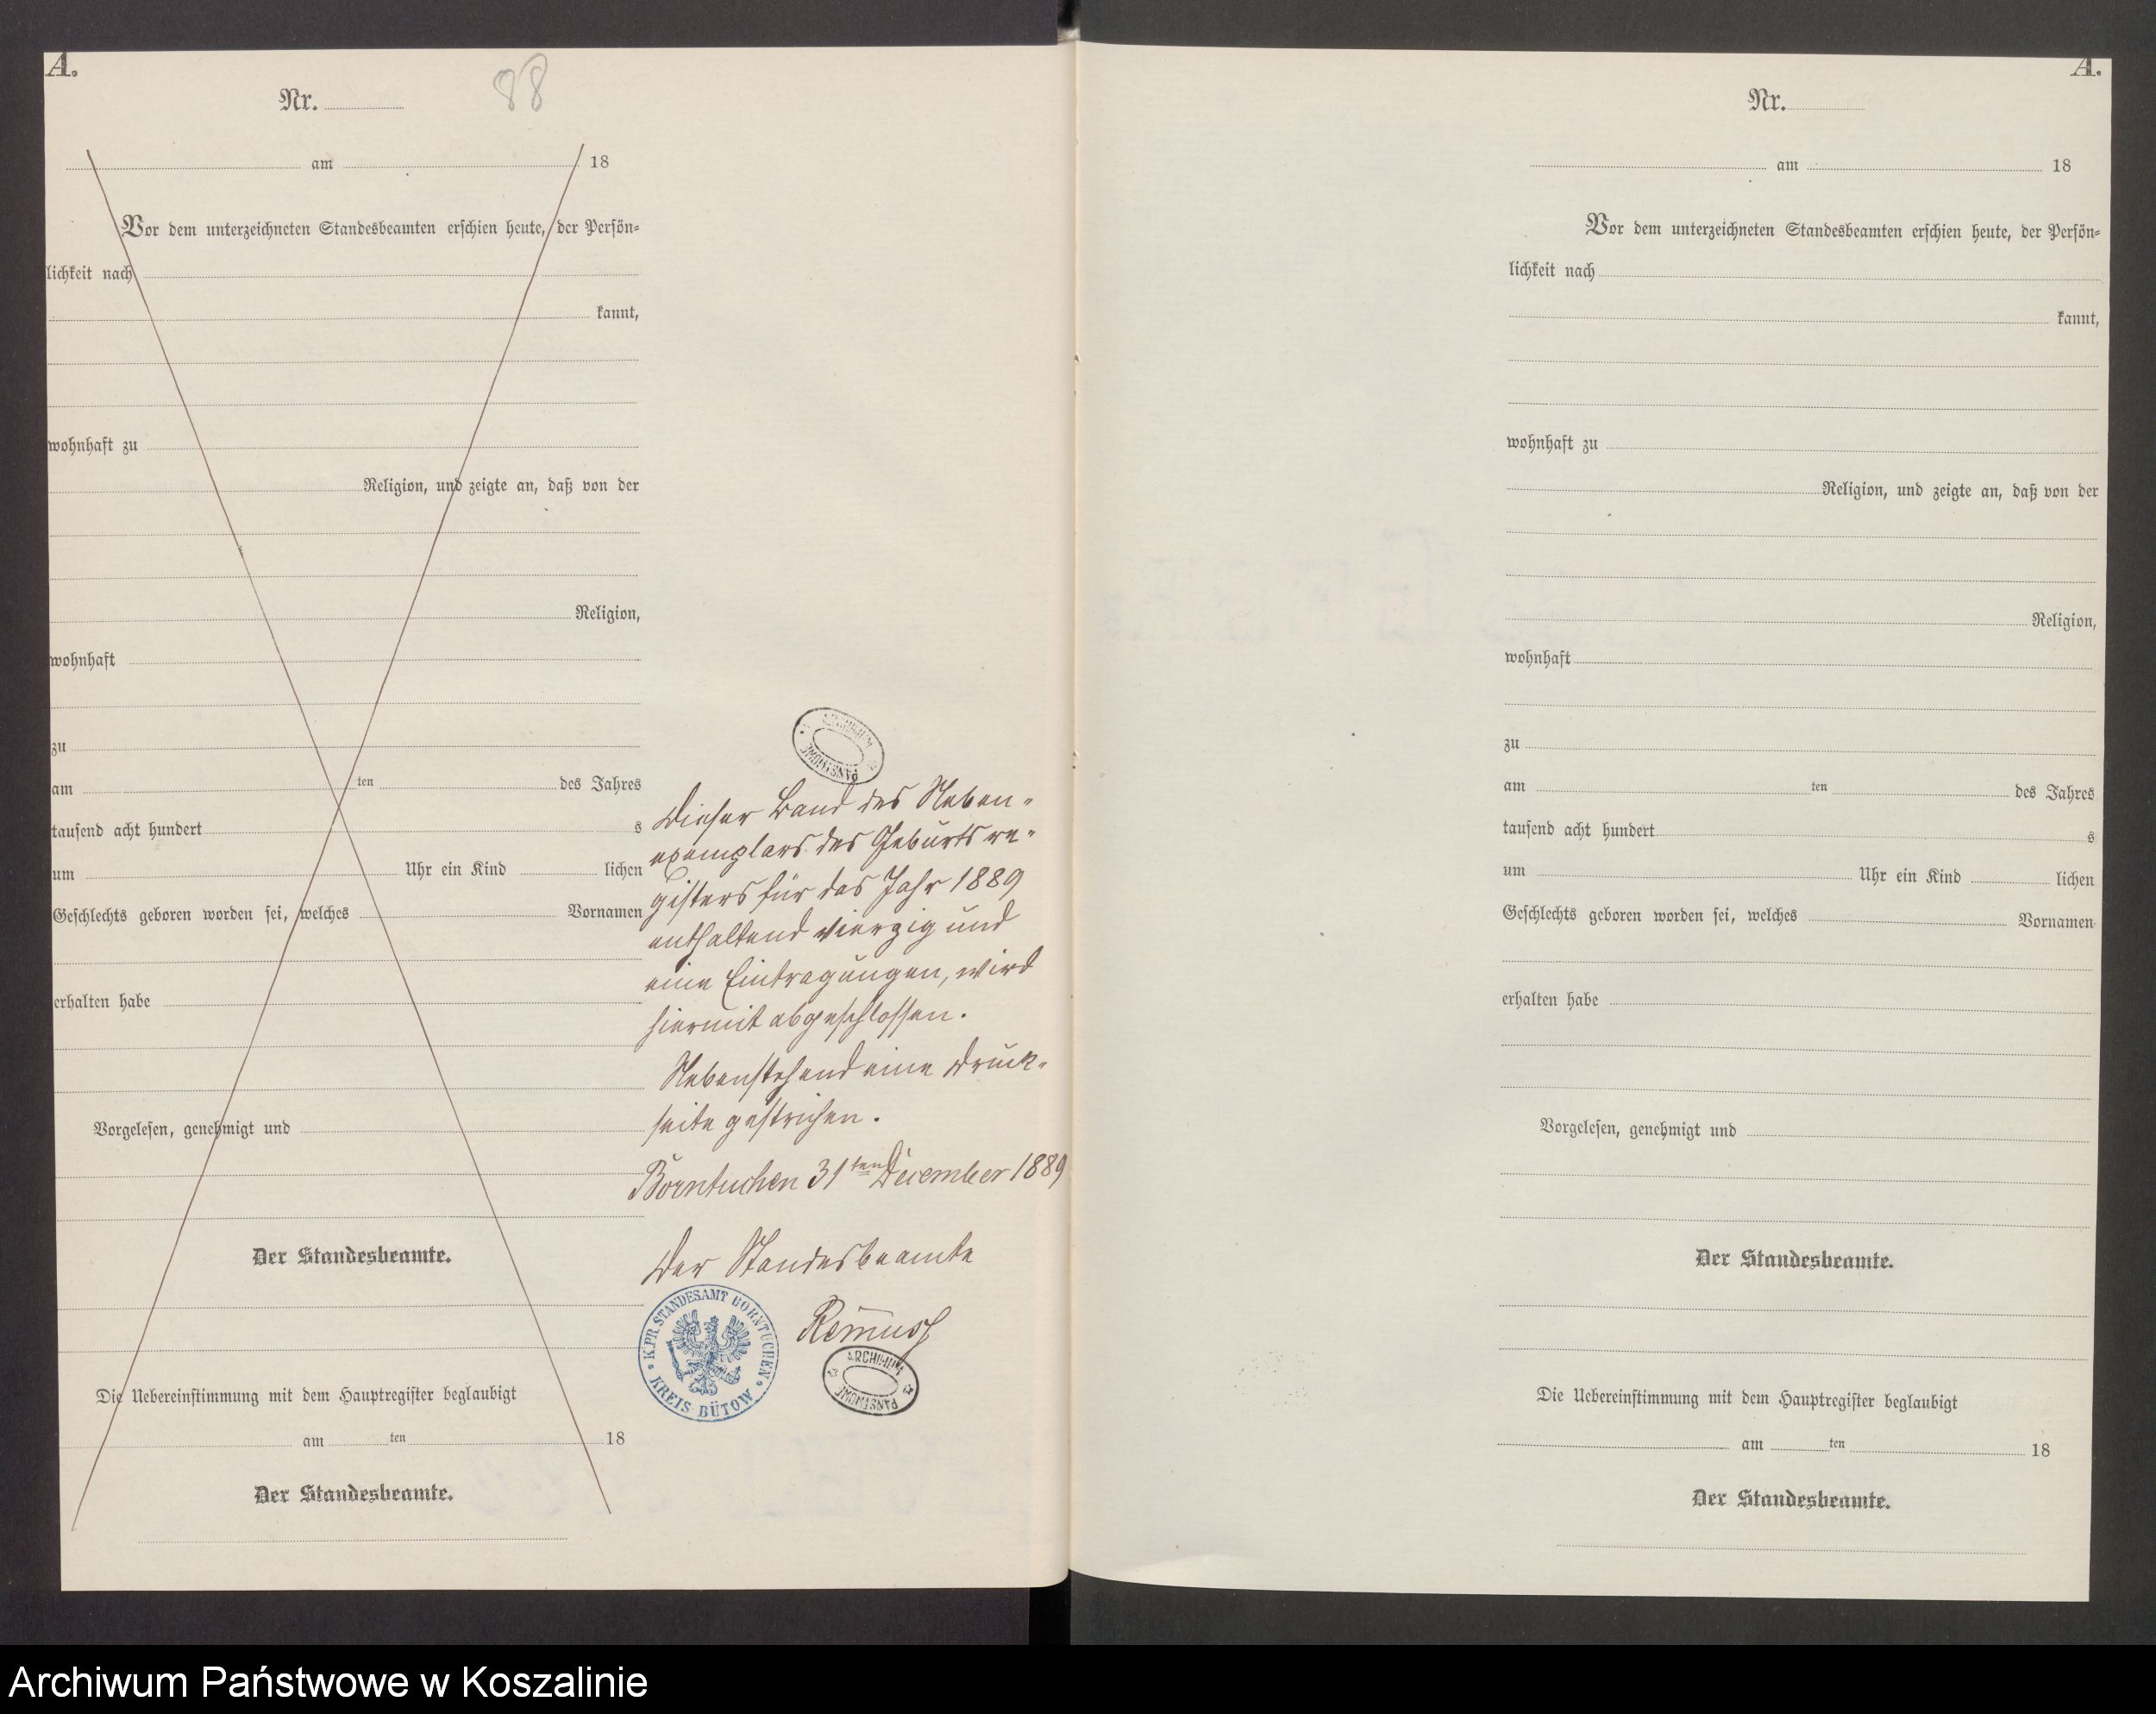 A.
Nr.
88
am 18
Vor dem unterzeichneten Standesbeamten erschien heute, der Persön=
lichkeit nach
kannt,
wohnhaft zu
Religion, und zeigte an, daß von der
Religion,
wohnhaft
zu
am ten des Jahres
tausend acht hundert s
um Uhr ein Kind lichen
Geschlechts geboren worden sei, welches Vornamen
erhalten habe
Vorgelesen, genehmigt und
Der Standesbeamte.
Die Uebereinstimmung mit dem Hauptregister beglaubigt
am ten 18
Der Standesbeamte.
ARCHIWUM PAŃSTWOWE
Dieser Band des Neben-
exemplars des Geburtsre-
gisters für das Jahr 1889
enthaltend vierzig und
eine Eintragungen, wird
hiermit abgeschlossen.
Nebenstehend eine Druck-
seite gestrichen.
Borntuchen 31ten December 1889
Der Standesbeamte
Remus
K. PR. STANDESAMT BORNTUCHEN
KREIS BÜTOW
ARCHIWUM PAŃSTWOWE
A.
Nr.
am 18
Vor dem unterzeichneten Standesbeamten erschien heute, der Persön=
lichkeit nach
kannt,
wohnhaft zu
Religion, und zeigte an, daß von der
Religion,
wohnhaft
zu
am ten des Jahres
tausend acht hundert s
um Uhr ein Kind lichen
Geschlechts geboren worden sei, welches Vornamen
erhalten habe
Vorgelesen, genehmigt und
Der Standesbeamte.
Die Uebereinstimmung mit dem Hauptregister beglaubigt
am ten 18
Der Standesbeamte.
Archiwum Państwowe w Koszalinie